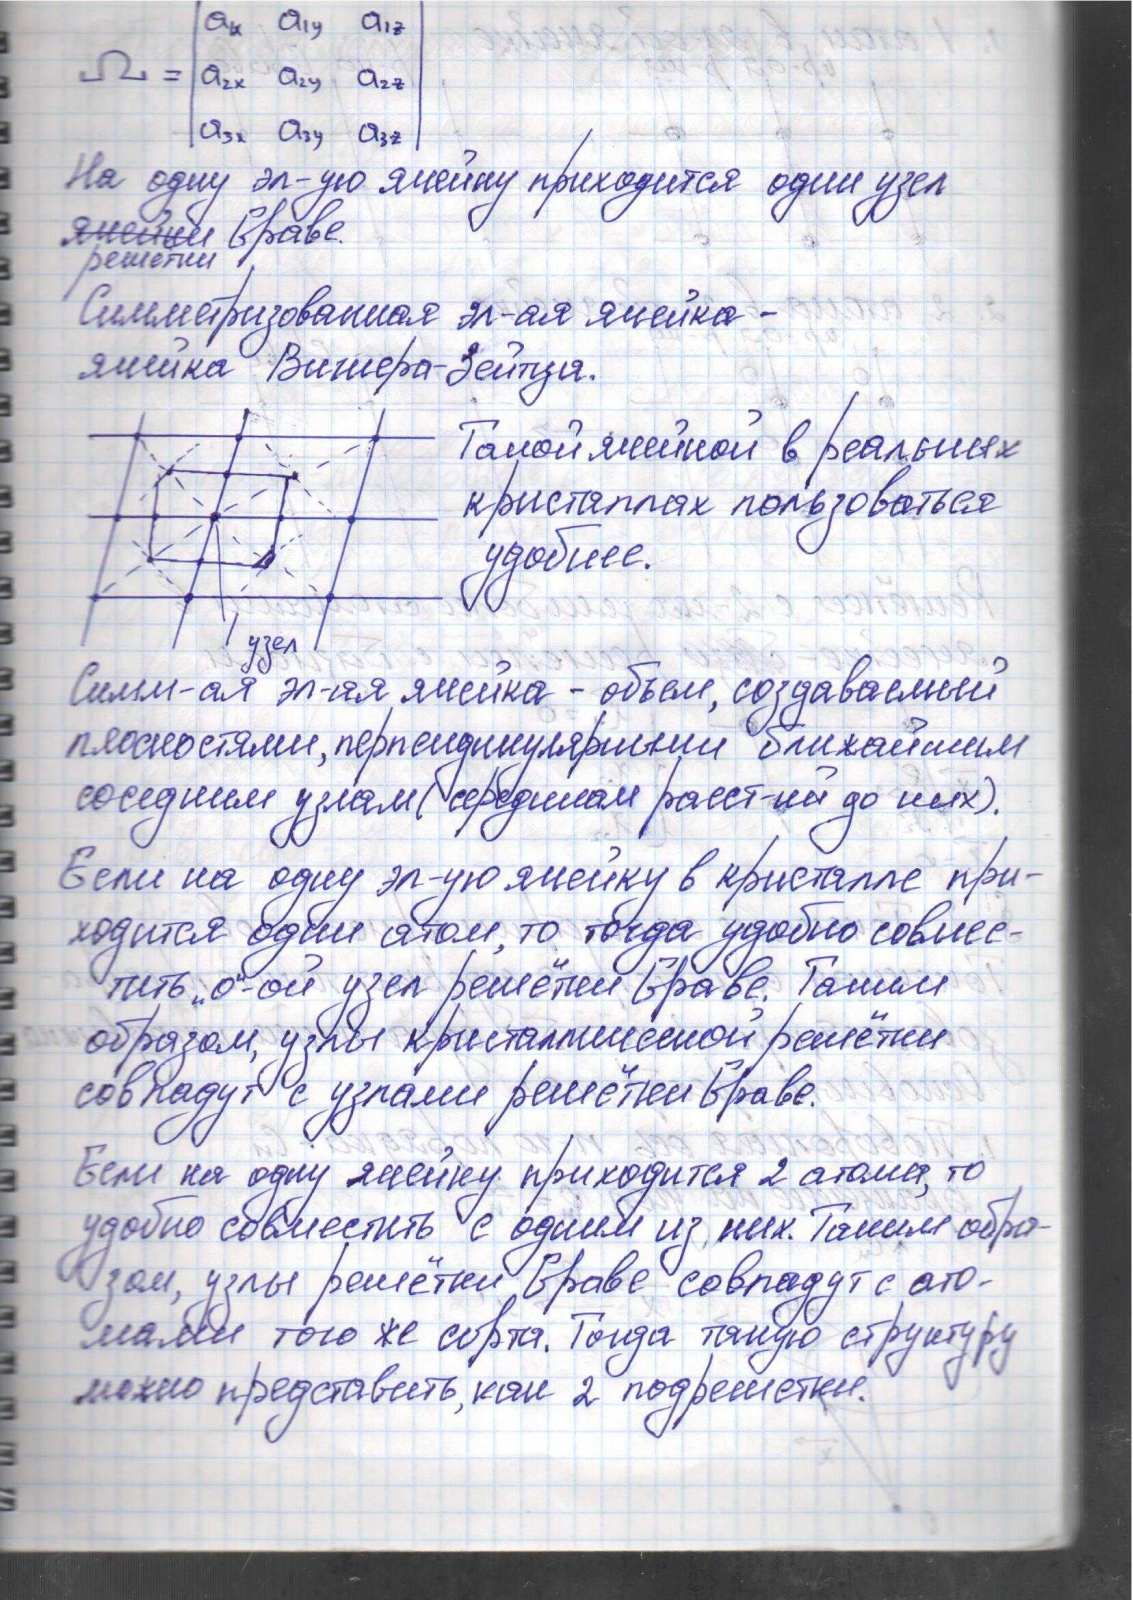 aₓ a₁y a₁z
Ω = a₂ₓ a₂y a₂z
a₃ₓ a₃y a₃z
На одну эл-ую ячейку приходится один узел
ячейки Браве.
решётки
Симметризованная эл-ая ячейка -
ячейка Вигнера-Зейтца.
Такой ячейкой в реальных
кристаллах пользоваться
удобнее.
узел
Симм-ая эл-ая ячейка - объем, создаваемый
плоскостями, перпендикулярными ближайшим
соседним узлам (серединам расст-ий до них).
Если на одну эл-ую ячейку в кристалле при-
ходится один атом, то тогда удобно совмес-
тить „0"-ой узел решётки Браве. Таким
образом, узлы кристаллической решётки
совпадут с узлами решётки Браве.
Если на одну ячейку приходится 2 атома, то
удобно совместить с одним из них. Таким обра-
зом, узлы решётки Браве совпадут с ато-
мами того же сорта. Тогда такую структуру
можно представить, как 2 подрешетки.